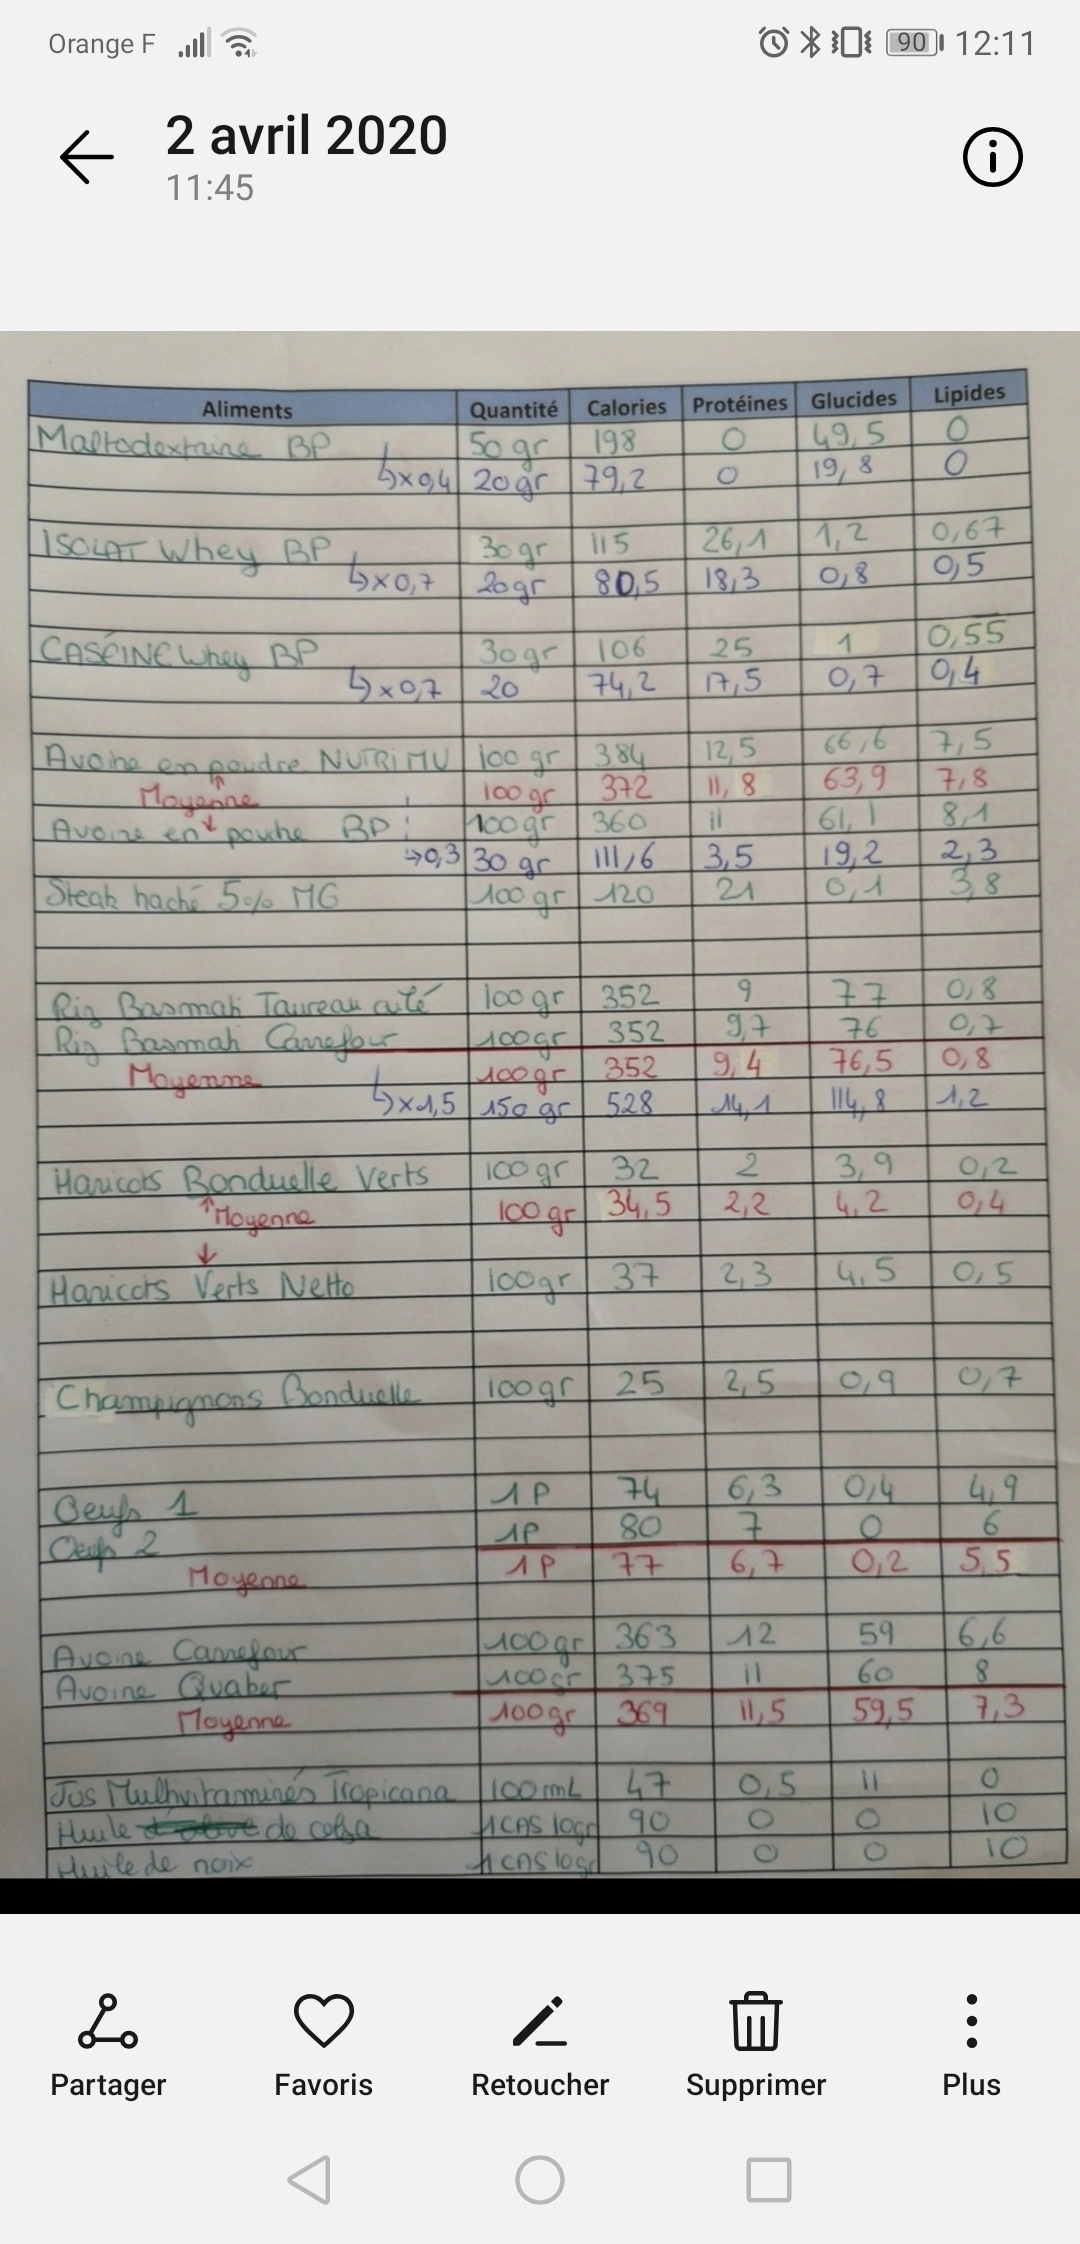 Orange F 90 12:11
2 avril 2020
11:45
Aliments Quantité Calories Protéines Glucides Lipides
Maltodextrine BP 50 gr 198 0 49,5 0
↳x0,4 20gr 79,2 0 19,8 0
ISOLAT Whey BP 30gr 115 26,1 1,2 0,67
↳x0,7 20gr 80,5 18,3 0,8 0,5
CASÉINE Whey BP 30gr 106 25 1 0,55
↳x0,7 20 74,2 17,5 0,7 0,4
Avoine en poudre NUTRIMU 100 gr 384 12,5 66,6 7,5
Moyenne 100gr 372 11,8 63,9 7,8
Avoine en poudre BP 100gr 360 11 61,1 8,1
↳0,3 30 gr 111,6 3,5 19,2 2,3
Steak haché 5% MG 100gr 120 21 0,1 3,8
Riz Basmati Taureau ailé 100gr 352 9 77 0,8
Riz Basmati Carrefour 100gr 352 9,7 76 0,7
Moyenne 100gr 352 9,4 76,5 0,8
↳x1,5 150 gr 528 14,1 114,8 1,2
Haricots Bonduelle Verts 100gr 32 2 3,9 0,2
↑Moyenne 100gr 34,5 2,2 4,2 0,4
↓
Haricots Verts Netto 100gr 37 2,3 4,5 0,5
Champignons Bonduelle 100gr 25 2,5 0,9 0,7
Oeufs 1 1P 74 6,3 0,4 4,9
Oeufs 2 1P 80 7 0 6
Moyenne 1P 77 6,7 0,2 5,5
Avoine Carrefour 100gr 363 12 59 6,6
Avoine Quaker 100gr 375 11 60 8
Moyenne 100gr 369 11,5 59,5 7,3
Jus Multivitaminés Tropicana 100mL 47 0,5 11 0
Huile de colza 1CAS 10gr 90 0 0 10
Huile de noix 1CAS 10gr 90 0 0 10
Partager Favoris Retoucher Supprimer Plus